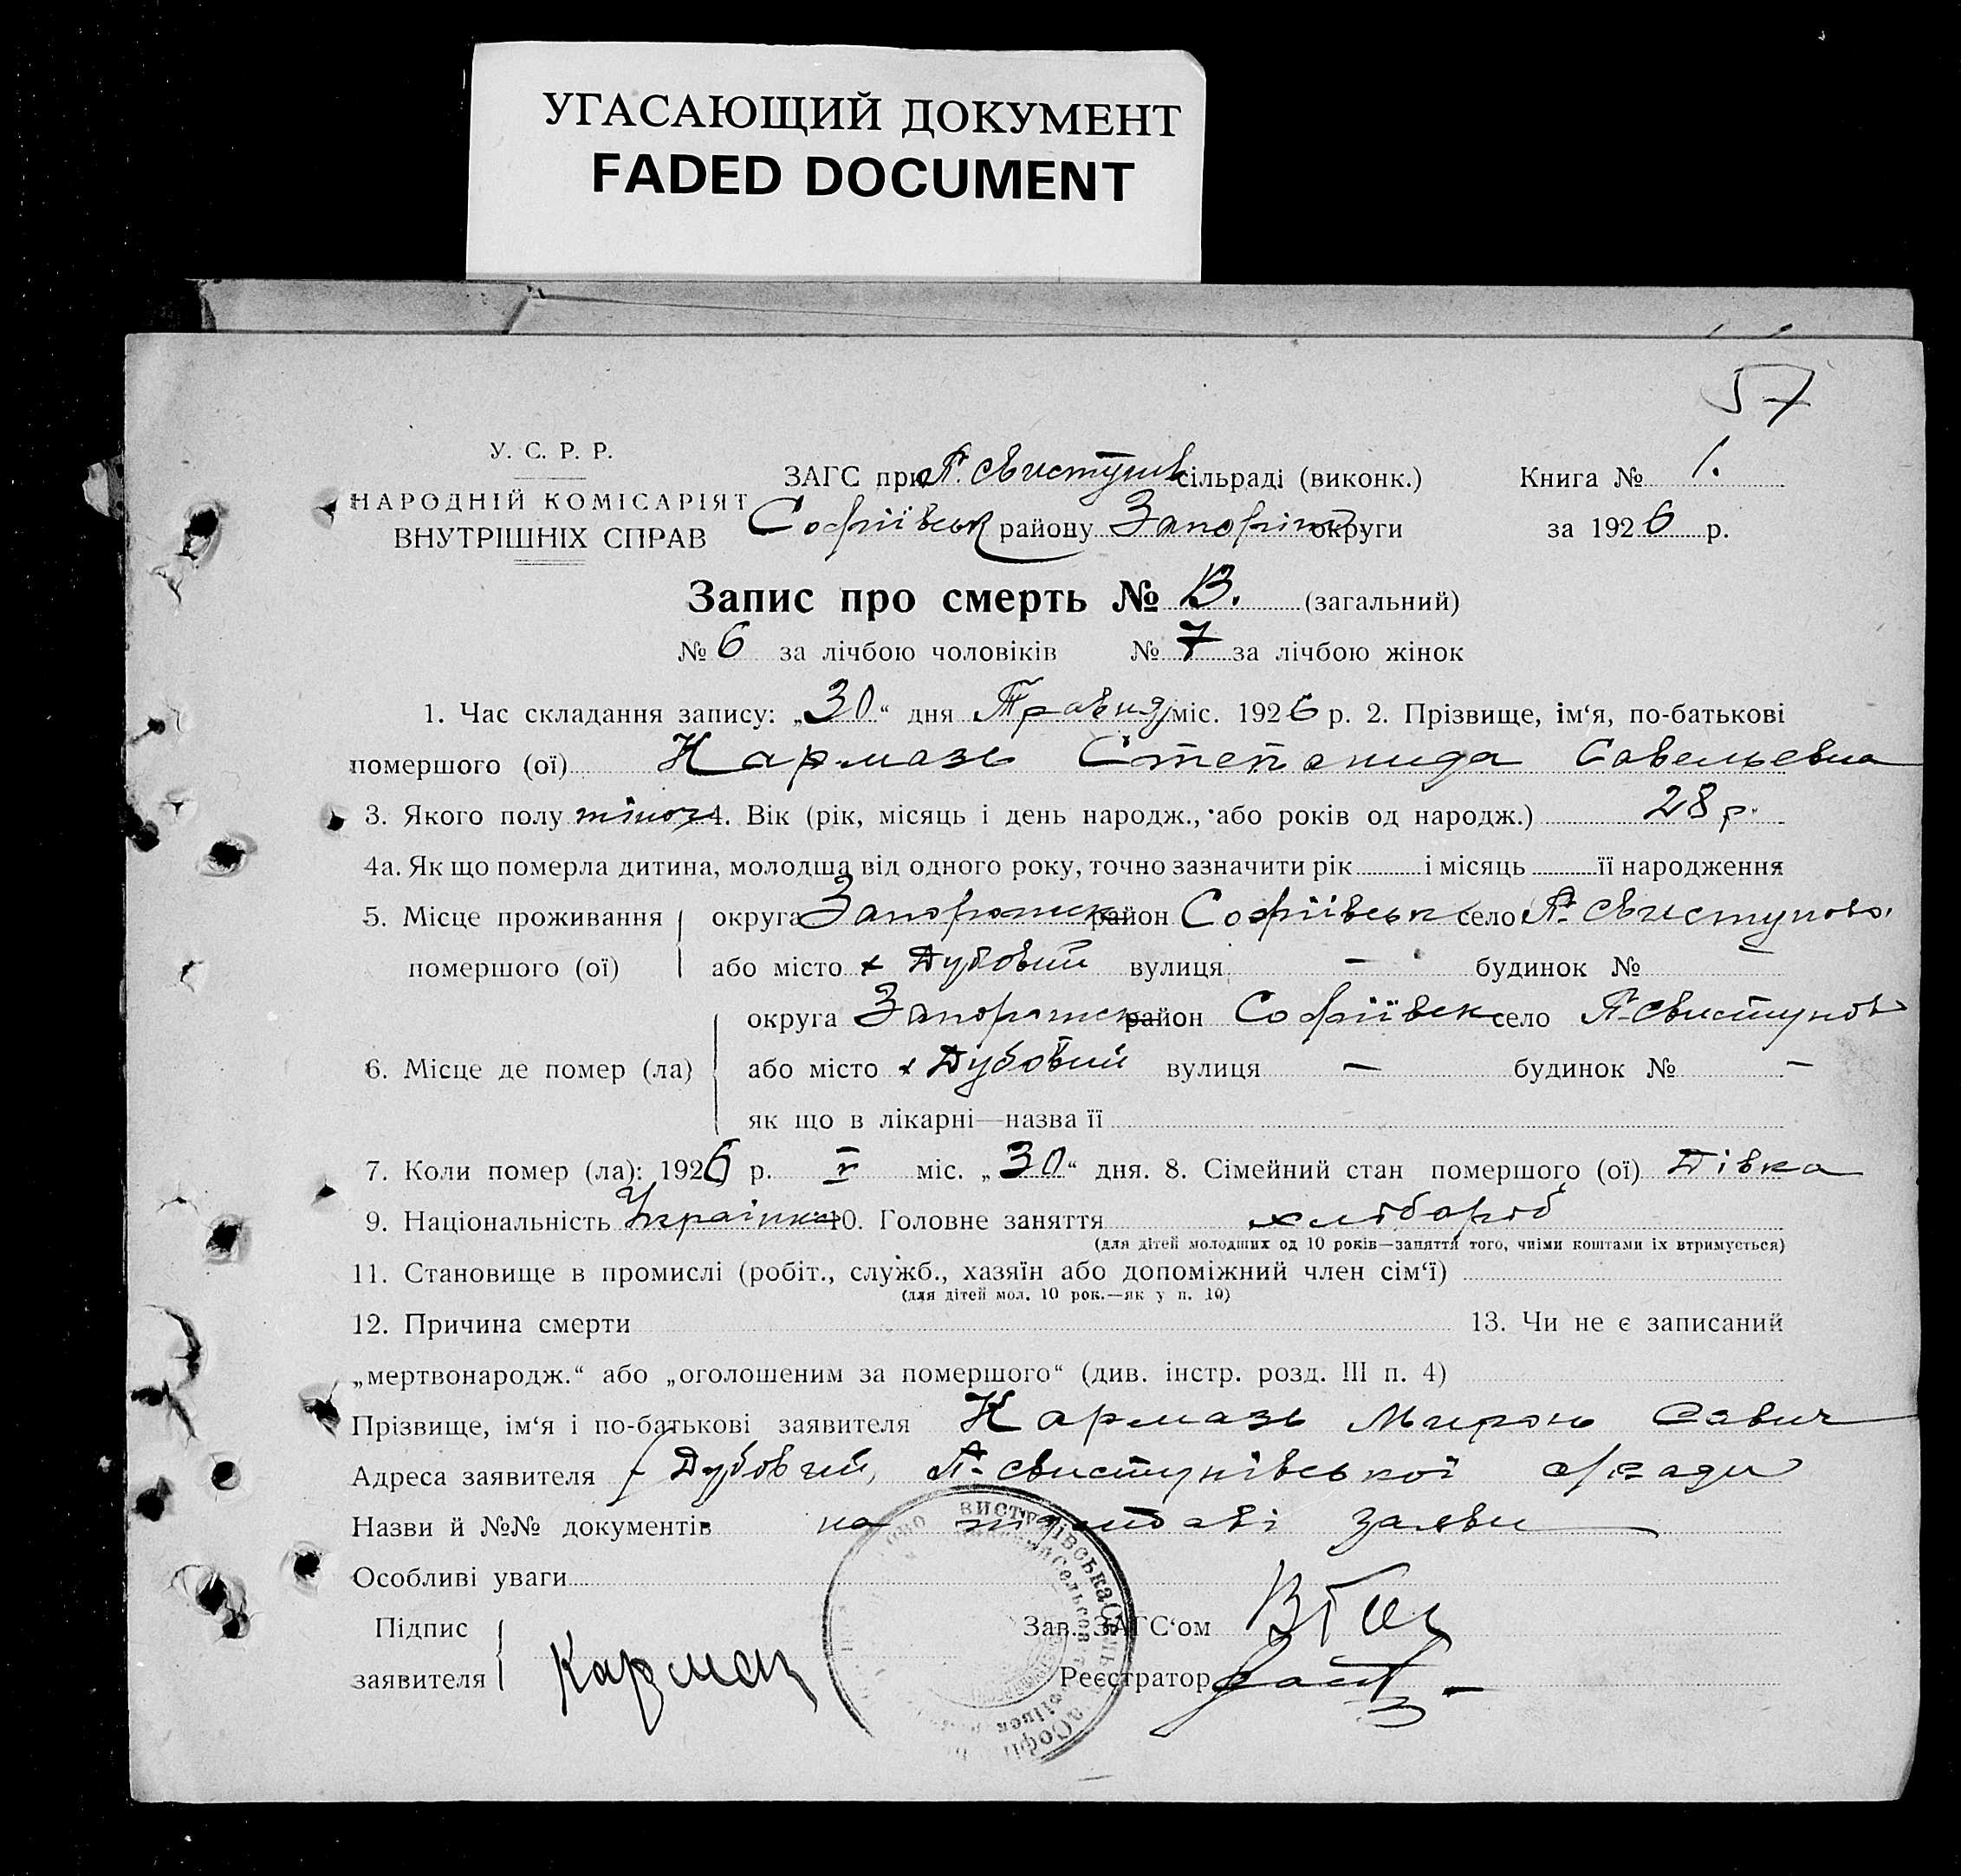 УГАСАЮЩИЙ ДОКУМЕНТ
FADED DOCUMENT
57
У. С. Р. Р.
НАРОДНІЙ КОМІСАРІЯТ
ВНУТРІШНІХ СПРАВ
ЗАГС при П. Свистунів сільраді (виконк.)
Софіївськ району Запоріж округи
Книга № 1.
за 1926 р.
Запис про смерть № 13. (загальний)
№ 6 за лічбою чоловіків № 7 за лічбою жінок
1. Час складання запису: „30“ дня Травня міс. 1926 р. 2. Прізвище, ім‘я, по-батькові
помершого (ої) Кармазь Степанида Савельевна
3. Якого полу жіноч 4. Вік (рік, місяць і день народж., або років од народж.) 28 р.
4а. Як що померла дитина, молодша від одного року, точно зазначити рік і місяць її народження
5. Місце проживання округа Запорожськ район Софіївськ село П. Свистуново.
помершого (ої) або місто х Дубовий вулиця — будинок №
округа Запорожськ район Софіївськ село П-Свистунов
6. Місце де помер (ла) або місто х Дубовий вулиця — будинок № —
як що в лікарні—назва її
7. Коли помер (ла): 1926 р. V міс. „30“ дня. 8. Сімейний стан помершого (ої) Дівка
9. Національність Українка 10. Головне заняття хлібороб
(для дітей молодших од 10 років—заняття того, чиїми коштами їх втримується)
11. Становище в промислі (робіт., служб., хазяїн або допоміжний член сім‘ї)
(для дітей мол. 10 рок.—як у п. 10)
12. Причина смерти 13. Чи не є записаний
„мертвонародж.“ або „оголошеним за помершого“ (див. інстр. розд. III п. 4)
Прізвище, ім‘я і по-батькові заявителя Кармазь Миронь Савич
Адреса заявителя х Дубовий, П-Свистунівської с/ради
Назви й №№ документів на підставі заяви
Особливі уваги
Підпис Зав. ЗАГС‘ом
заявителя Кармаз Реєстратор